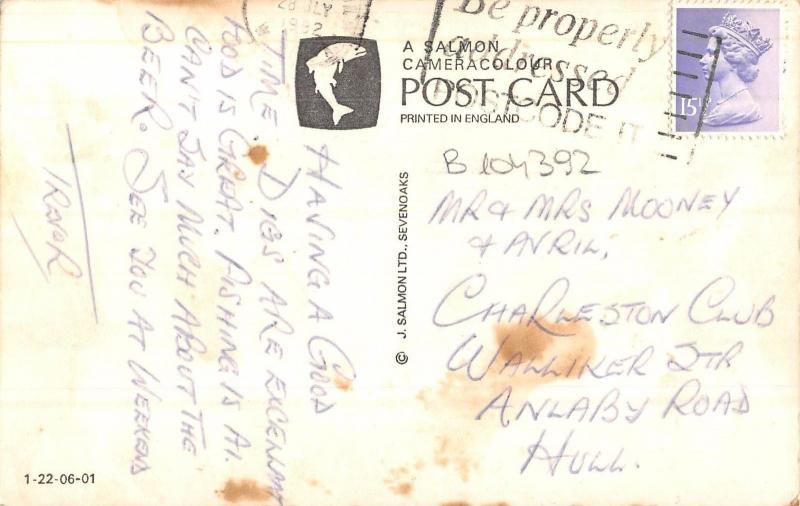 HAVING A GOOD
TIME. DIGS ARE EXCELLANT
FOOD IS GREAT. FISHING IS A1.
CAN'T SAY MUCH ABOUT THE
BEER. SEE YOU AT WEEKEND
TREVOR
28 JLY
1982
Be properly
addressed
POSTCODE IT
15P
A SALMON
CAMERACOLOUR
POST CARD
PRINTED IN ENGLAND
B 104392
MR & MRS MOONEY
& AVRIL,
CHARLESTON CLUB
WALLIKER STR
ANLABY ROAD
HULL.
© J. SALMON LTD., SEVENOAKS
1-22-06-01